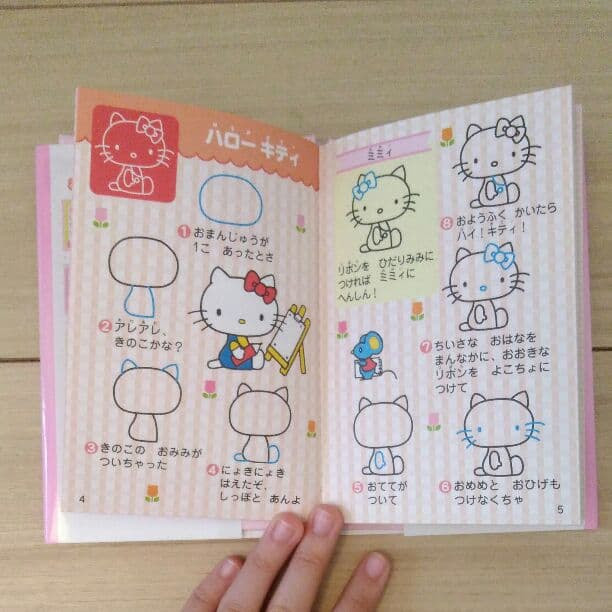 ハローキティ
❶おまんじゅうが
1こ あったとさ
❷アレアレ、
きのこかな?
❸きのこの おみみが
ついちゃった
❹にょきにょき
はえたぞ、
しっぽと あんよ
4
ミミィ
リボンを ひだりみみに
つければ ミミィに
へんしん!
❺おててが
ついて
❻おめめと おひげも
つけなくちゃ
❼ちいさな おはなを
まんなかに、おおきな
リボンを よこちょに
つけて
❽おようふく かいたら
ハイ!キティ!
5